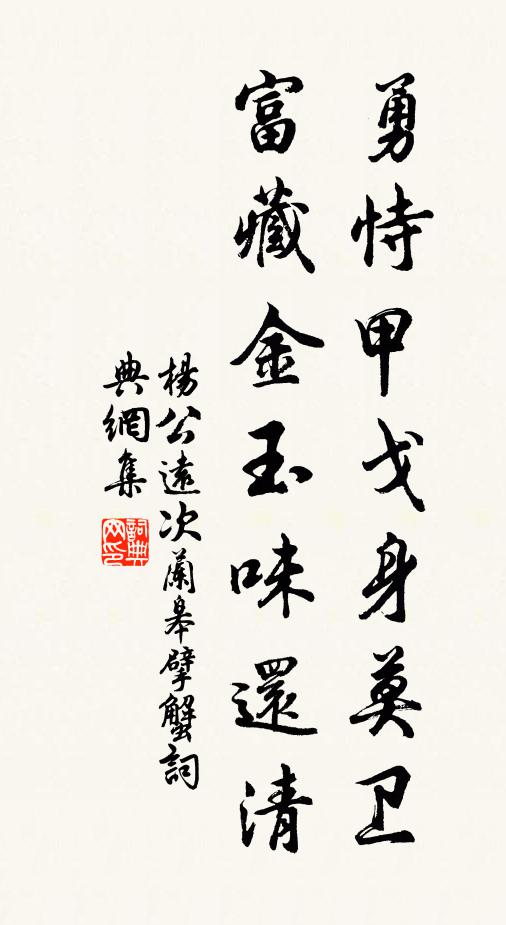 勇恃甲戈身莫卫
富藏金玉味還清
楊公遠次蘭皋擘蟹詞
典網集
詞典
网印